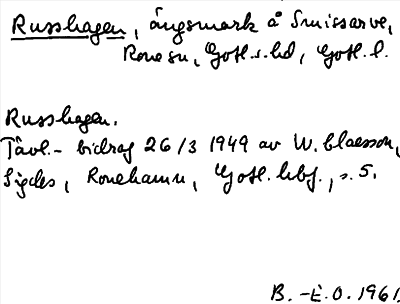 Russhagen, ängsmark å Smissarve,
Rone sn, Gotl. s. hd, Gotl. l.
Russhagen.
Tävl.- bidrag 26/3 1949 av W. Claesson,
Sigdes, Ronehamn, Gotl. hbf., s. 5.
B. -E. O. 1961.